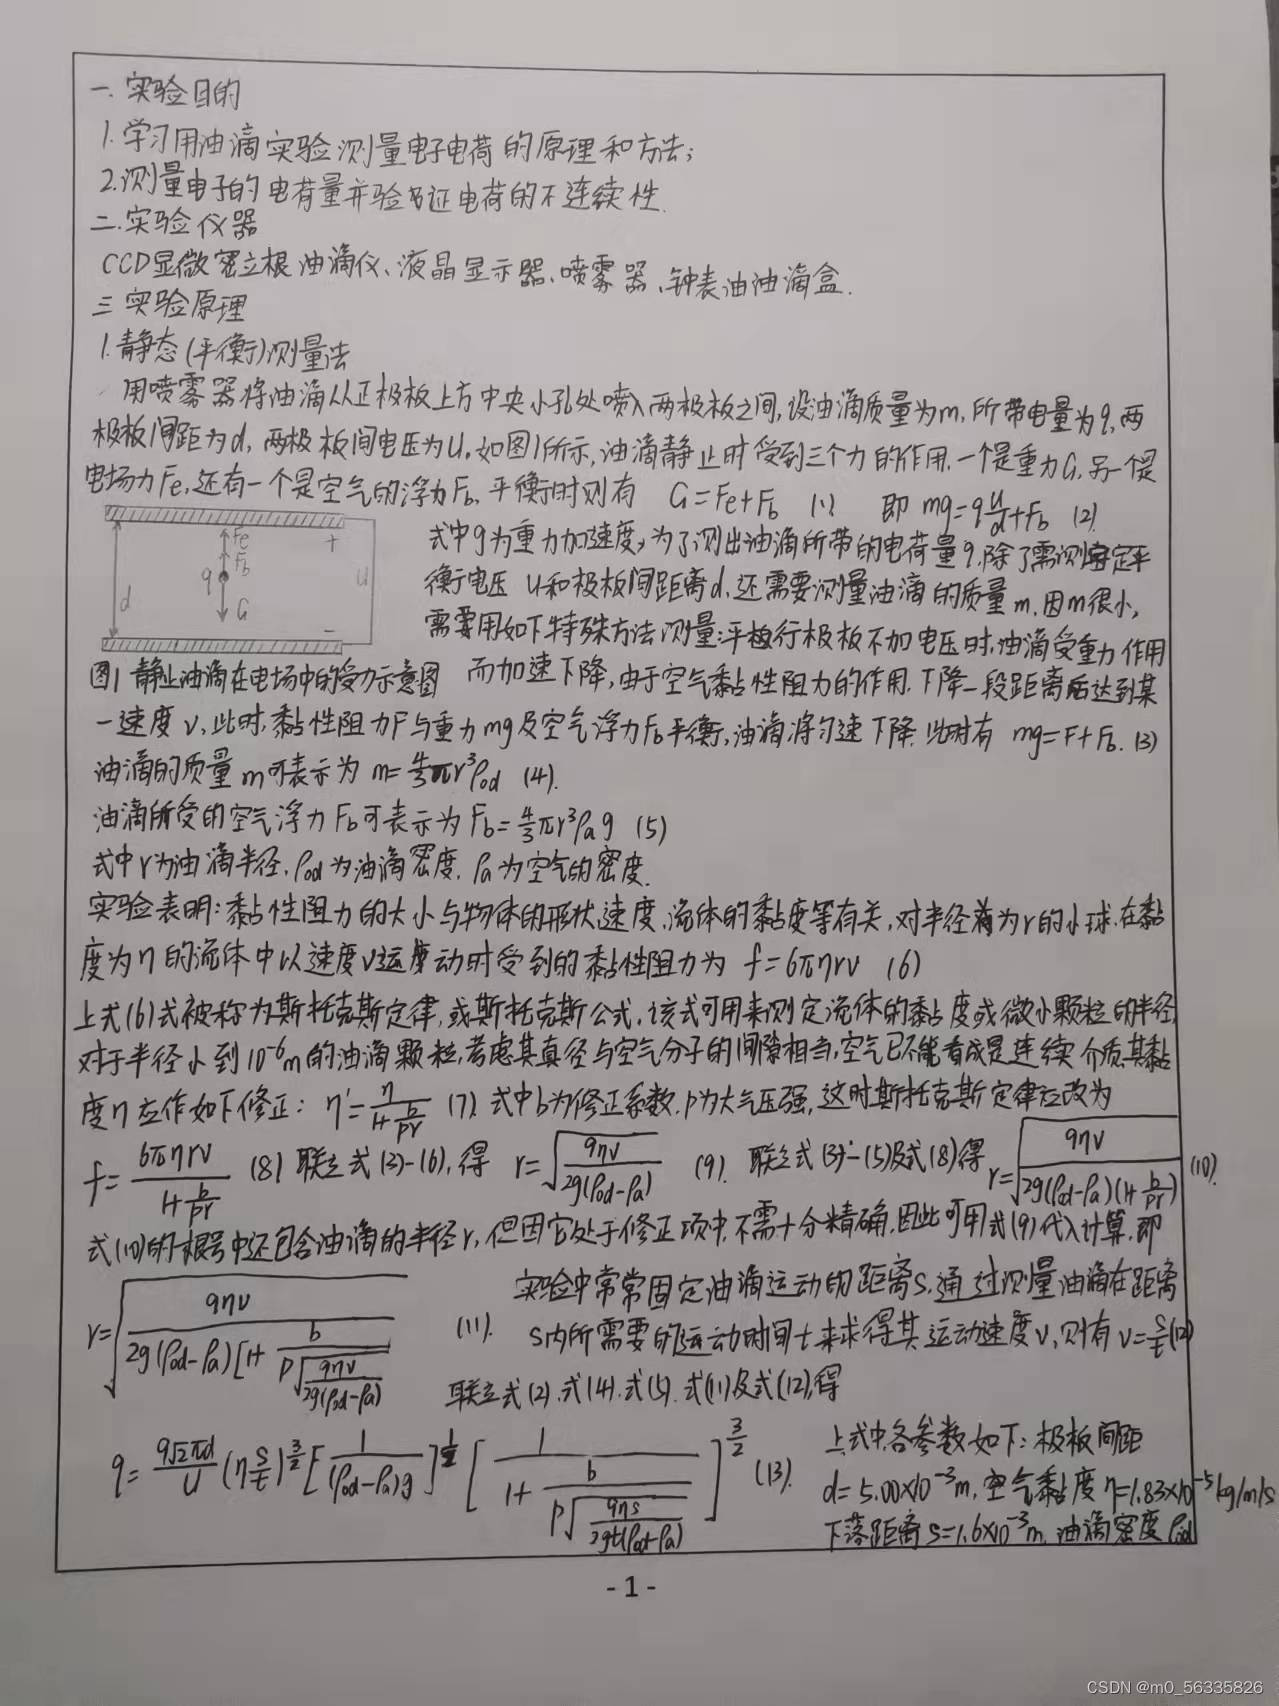 一. 实验目的
1. 学习用油滴实验测量电子电荷的原理和方法;
2. 测量电子的电荷量并验证电荷的不连续性.
二. 实验仪器
CCD显微密立根油滴仪、液晶显示器、喷雾器、钟表油油滴盒.
三 实验原理
1. 静态(平衡)测量法
用喷雾器将油滴从正极板上方中央小孔处喷入两极板之间,设油滴质量为m,所带电量为q,两
极板间距为d,两极板间电压为U。如图1所示,油滴静止时受到三个力的作用.一个是重力G,另一个是
电场力Fe,还有一个是空气的浮力Fb,平衡时则有 G=Fe+Fb (1) 即 mg=q\frac{U}{d}+Fb (2)
Fe + Fb q U d G -
式中g为重力加速度,为了测出油滴所带的电荷量q,除了需测定平
衡电压 U和极板间距离d,还需要测量油滴的质量m.因m很小,
需要用如下特殊方法测量:平行极板不加电压时,油滴受重力作用
图1 静止油滴在电场中的受力示意图 而加速下降,由于空气黏性阻力的作用.下降一段距离后达到某
一速度v,此时,黏性阻力F与重力mg及空气浮力Fb平衡,油滴将匀速下降.此时有 mg=F+Fb. (3)
油滴的质量m可表示为 m=\frac{4}{3}πr³ρod (4).
油滴所受的空气浮力Fb可表示为 Fb=\frac{4}{3}πr³ρa g (5)
式中r为油滴半径,ρod为油滴密度.ρa为空气的密度.
实验表明:黏性阻力的大小与物体的形状,速度、流体的黏度等有关,对半径为r的小球.在黏
度为η的流体中以速度v运动时受到的黏性阻力为 f=6πηrv (6)
上式(6)式被称为斯托克斯定律,或斯托克斯公式.该式可用来测定流体的黏度或微小颗粒的半径,
对于半径小到10⁻⁶m的油滴颗粒,考虑其直径与空气分子的间隙相当,空气已不能看成是连续介质,其黏
度η应作如下修正: η'=\frac{η}{1+\frac{b}{pr}} (7) 式中b为修正系数.p为大气压强,这时斯托克斯定律应改为
f=\frac{6πηrv}{1+\frac{b}{pr}} (8) 联立式(3)-(6),得 r=\sqrt{\frac{9ηv}{2g(ρod-ρa)}} (9). 联立式(3)-(5)及式(8)得 r=\sqrt{\frac{9ηv}{2g(ρod-ρa)(1+\frac{b}{pr})}} (10).
式(10)的根号中还包含油滴的半径r,但因它处于修正项中,不需十分精确.因此可用式(9)代入计算.即
r=\sqrt{\frac{9ηv}{2g(ρod-ρa)[1+\frac{b}{p\sqrt{\frac{9ηv}{2g(ρod-ρa)}}}}} (11).
实验中常常固定油滴运动的距离s.通过测量油滴在距离
s内所需要的运动时间t来求得其运动速度v,则有 v=\frac{s}{t}(12)
联立式(2).式(4).式(5).式(11)及式(12),得
q=\frac{9\sqrt{2}πd}{U}(η\frac{s}{t})^{\frac{3}{2}}[\frac{1}{(ρod-ρa)g}]^{\frac{1}{2}}[\frac{1}{1+\frac{b}{p\sqrt{\frac{9ηs}{2gt(ρod+ρa)}}}}]^{\frac{3}{2}} (13).
上式中各参数如下:极板间距
d=5.00×10⁻³m,空气黏度η=1.83×10⁻⁵kg/m/s
下落距离s=1.6×10⁻³m,油滴密度ρod
- 1 -
CSDN @m0_56335826